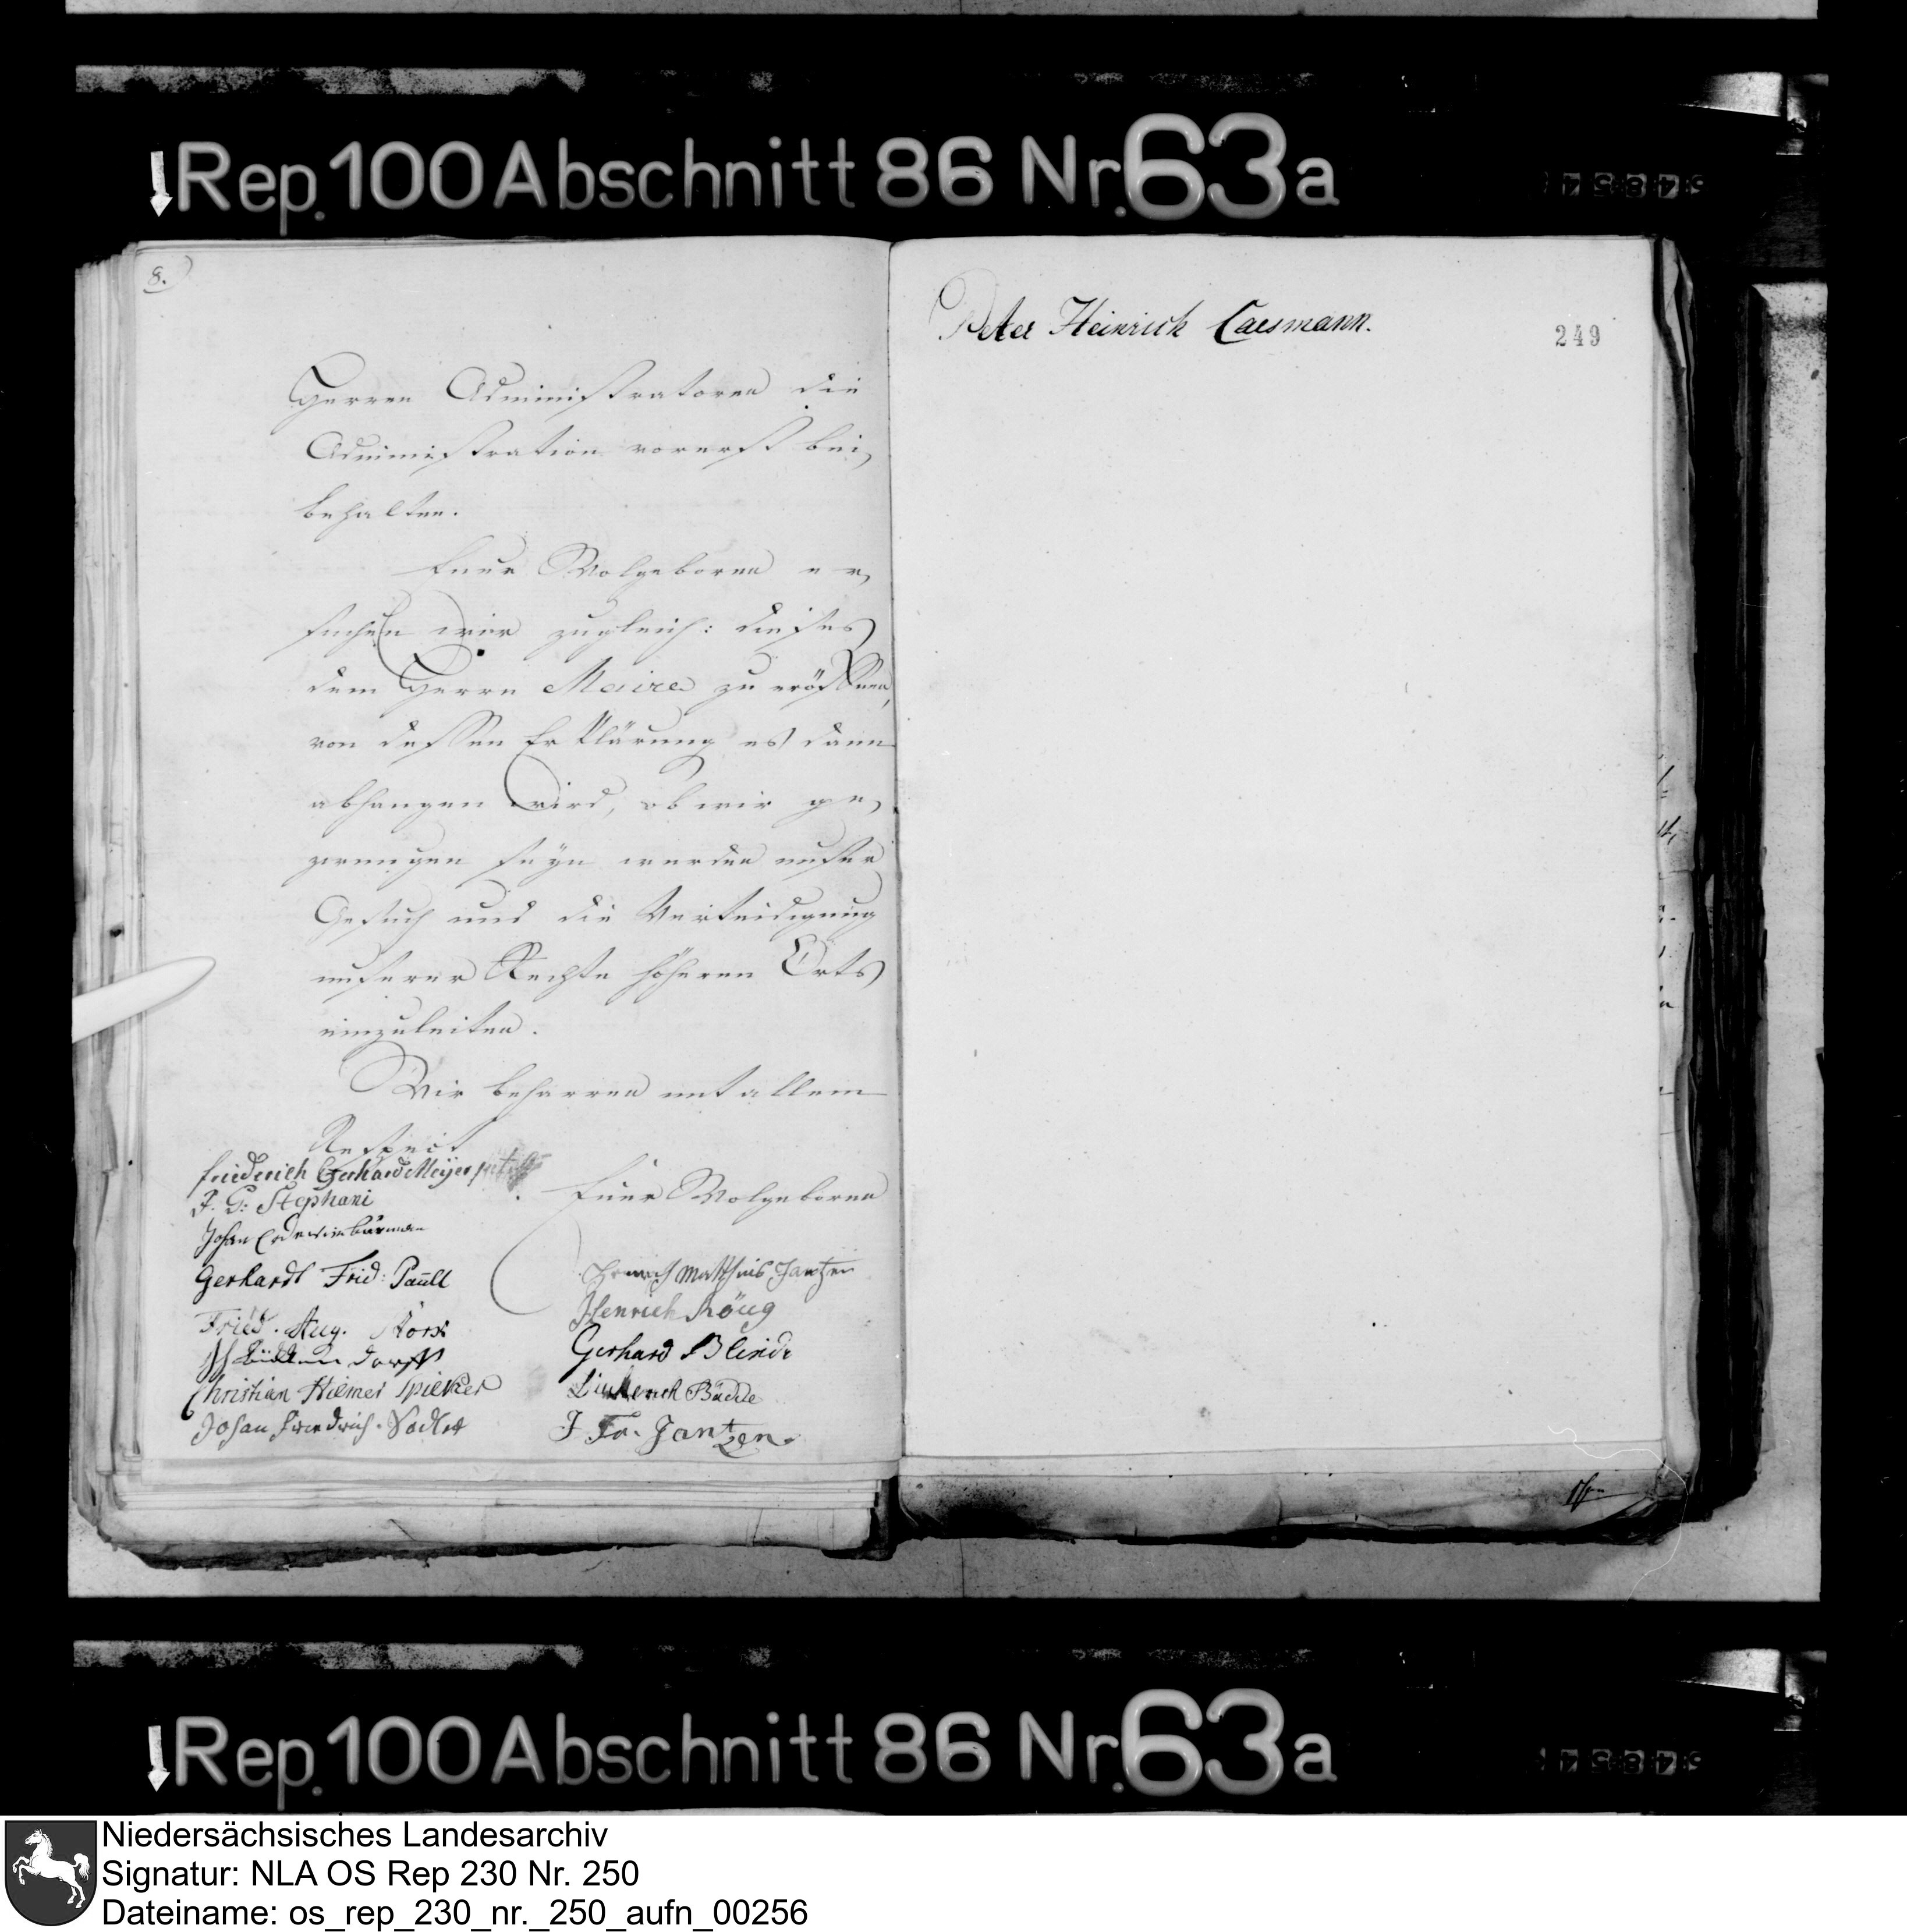 Rep. 100 Abschnitt 86 Nr. 63a
8.
Herren Administratoren die
Administration vorerst bei,
behalten.
Euer Wolgeboren er,
suchen wir zugleich: dieses
dem Herrn Maire zu eröffnen,
von dessen Erklärung es dann
abhangen wird, ob wir ge,
zwungen seyn werden unser
Gesuch und die Verteidigung
unserer Rechte höheren Orts
einzuleiten.
Wir beharren mit allem
Respect
Euer Wolgeboren
Friederich Gerhard Meijer
F. G: Stephani
Johan
Gerhardt Frid: Paull
Fried. Aug.
Christian Hilmer Spieker
Johan Friedrich
Henrich Matthias Jantzen
Henrich Röug
Gerhard Blinde
Büdde
J Fr. Jantzen
Peter Heinrich Caesmann.
249
Rep. 100 Abschnitt 86 Nr. 63a
Niedersächsisches Landesarchiv
Signatur: NLA OS Rep 230 Nr. 250
Dateiname: os_rep_230_nr._250_aufn_00256